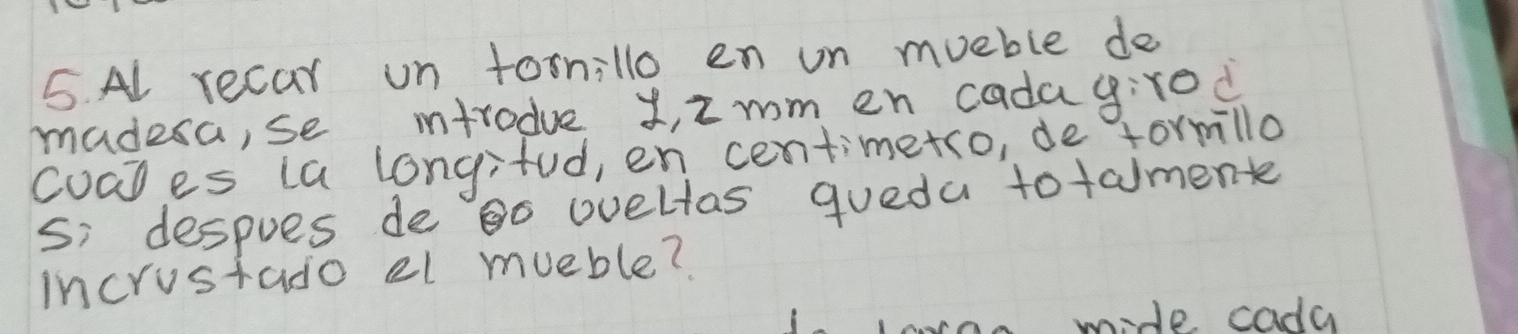 5. Al recar un tornillo en un mueble de
madera, se introdue 1,2 mm en cada giro ¿
cual es la longitud, en centimetro, de tornillo
si despues de vueltas queda totalmente
incrustado el mueble?
mide cada